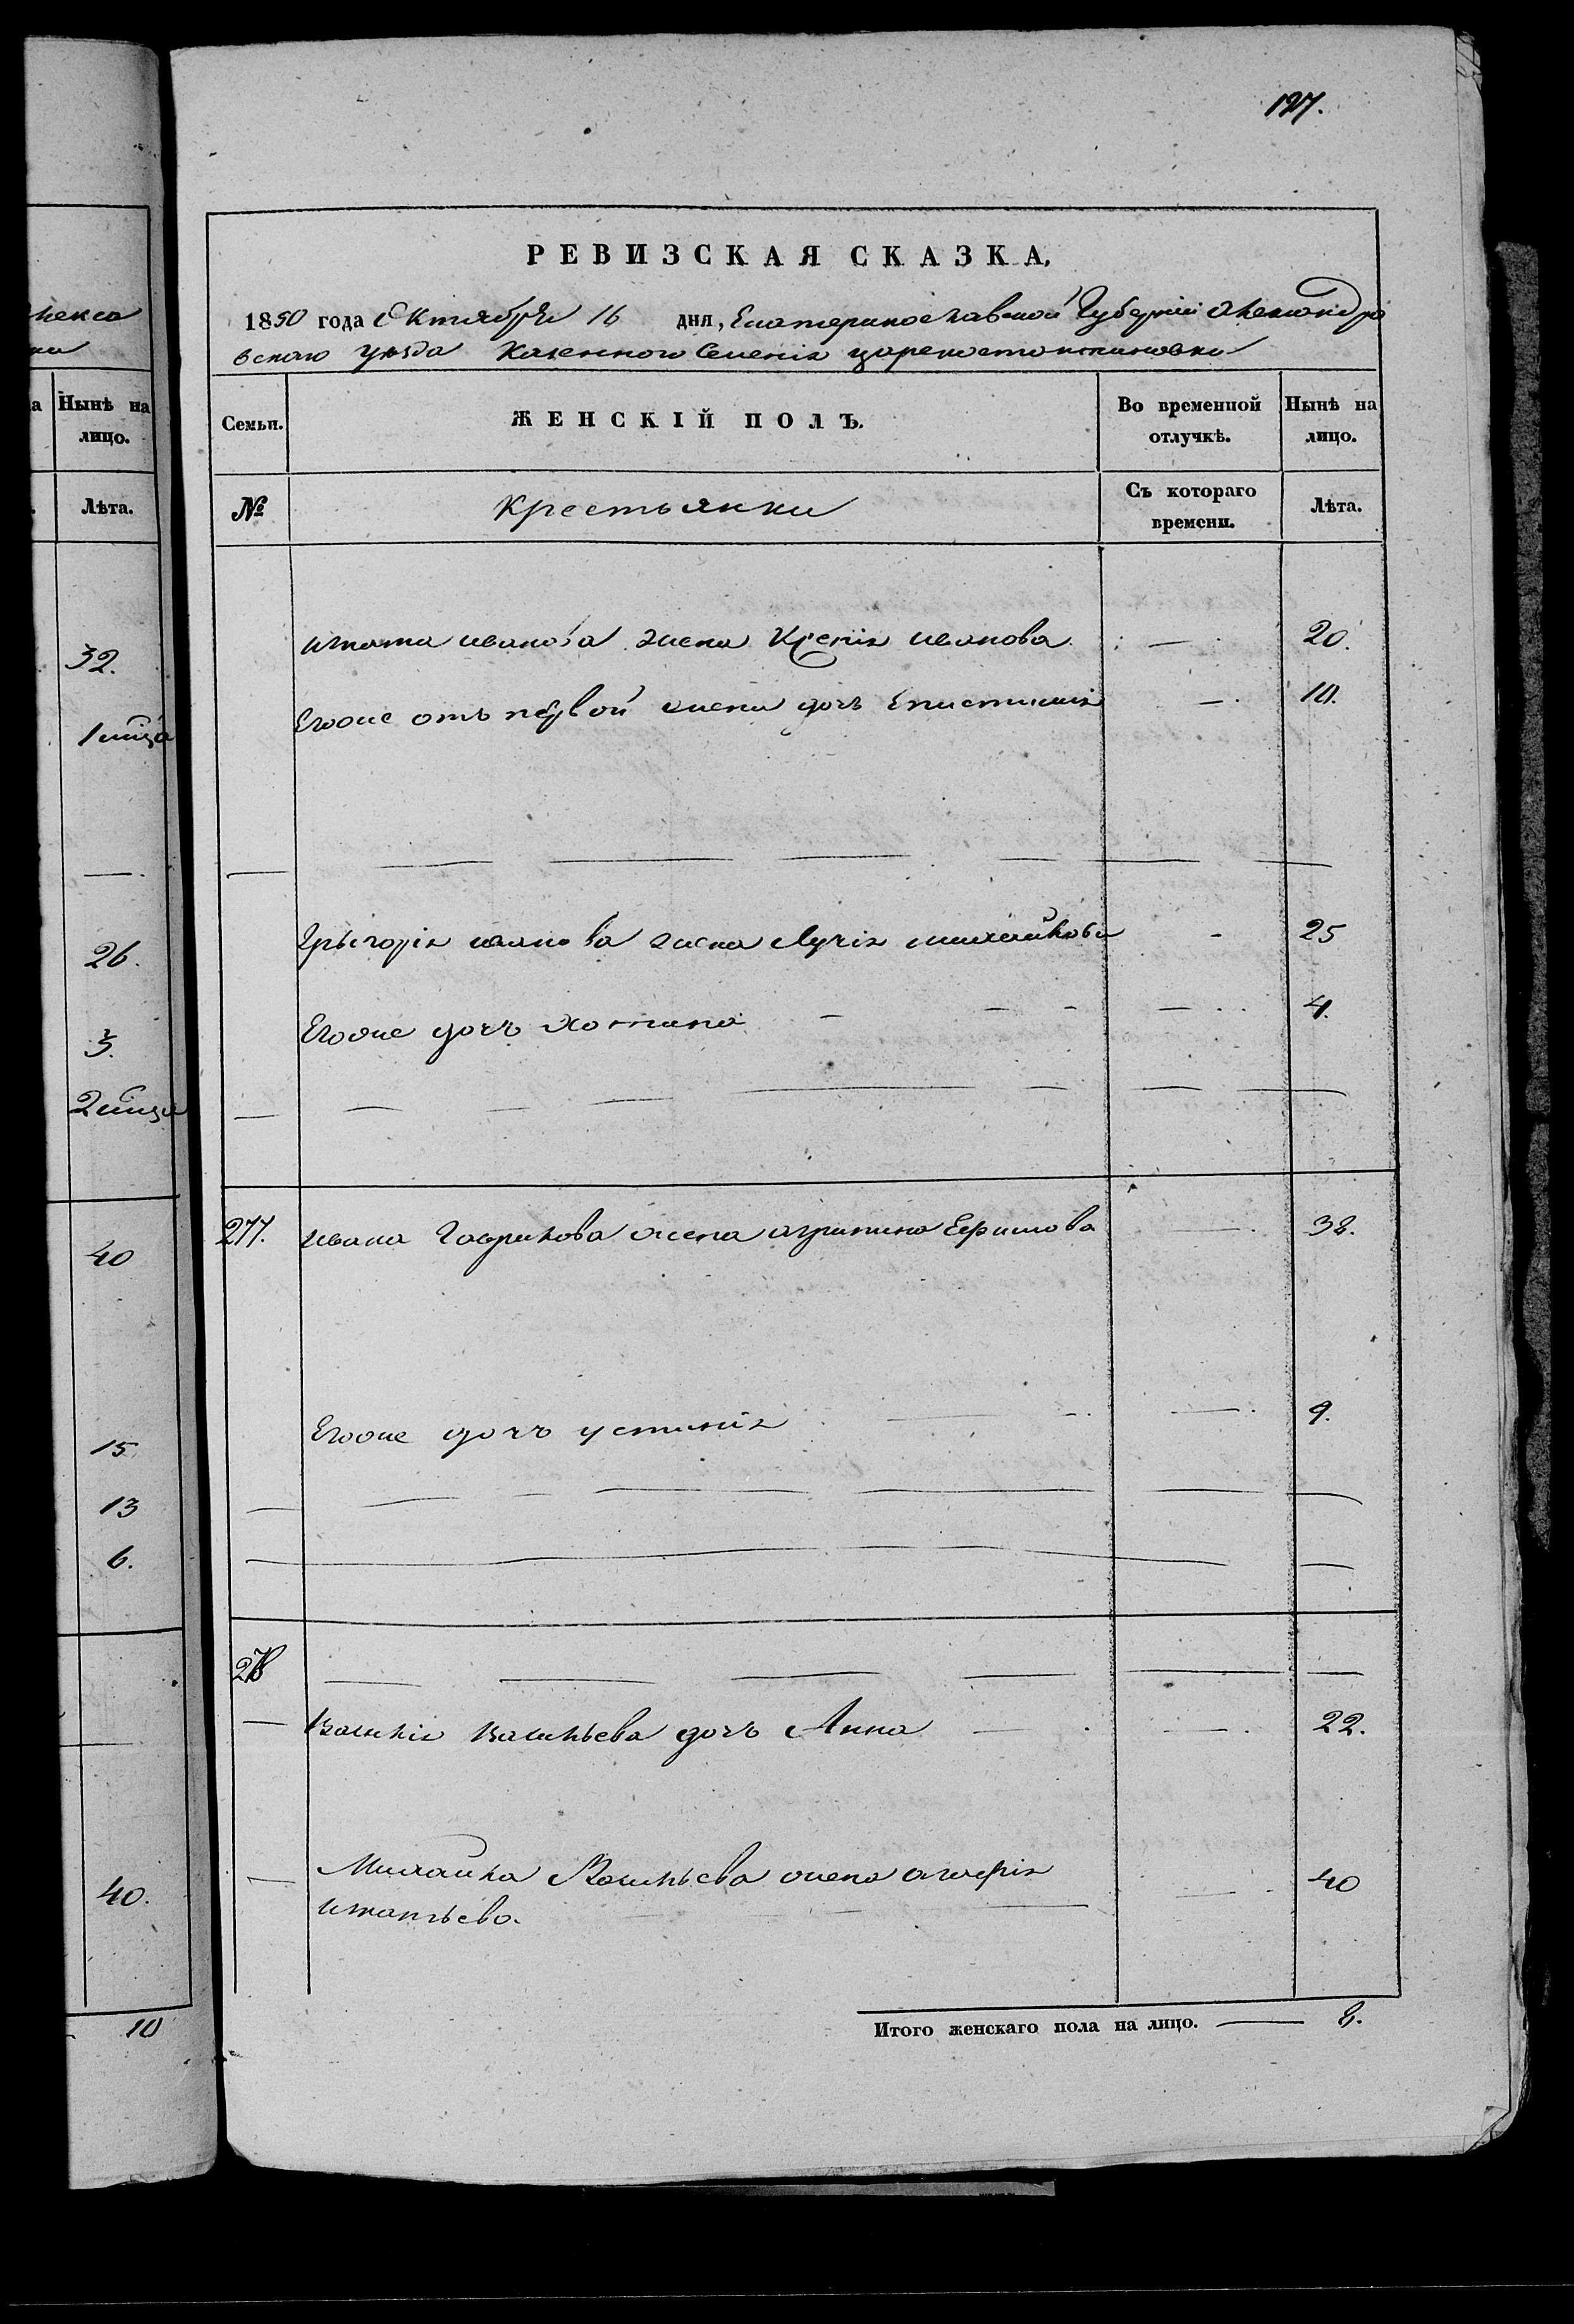 127.
РЕВИЗСКАЯ СКАЗКА,
1850 года Октября 16 дня, Екатеринославской Губернии Александро
вского уезда Казенного Селенія Цареконстантиновки
Семьи.
ЖЕНСКІЙ ПОЛЪ.
Во временной отлучкѣ.
Нынѣ на лицо.
№
Крестьянки
Съ котораго времени.
Лѣта.
Игната иванова жена Ксенія иванова — 20.
Егоже отъ первой жены дочь Епистимія — 10.
Григорія иванова жена Лукія михайлова - 25
Егоже дочь — 4.
277. ивана Гаврилова жена агрипина Ефимова — 38.
Егоже дочь устинія — 9.
278
Василія васильева дочь Анна — 22.
Михаила Васильева жена агафія — 40
игнатьева.
Итого женскаго пола на лицо. — 8.
Нынѣ на
лицо.
Лѣта.
32.
26.
3.
40
15
13
6.
40.
10